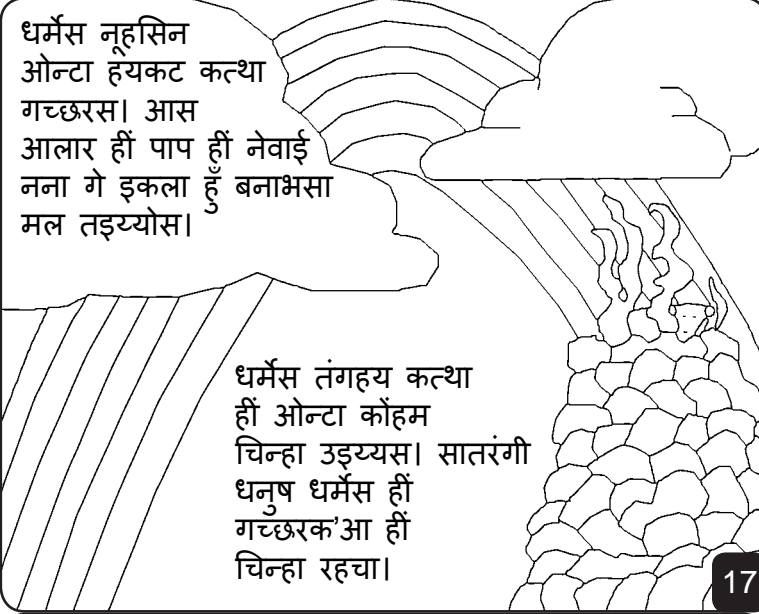 धर्मेस नूहसिन
ओन्टा हयकट कत्था
गच्छरस। आस
आलार हीं पाप हीं नेवाई
नना गे इकला हूँ बनाभसा
मल तइय्योस।
धर्मेस तंगहय कत्था
हीं ओन्टा कोंहम
चिन्हा उइय्यस। सातरंगी
धनुष धर्मेस हीं
गच्छरक'आ हीं
चिन्हा रहचा।
17